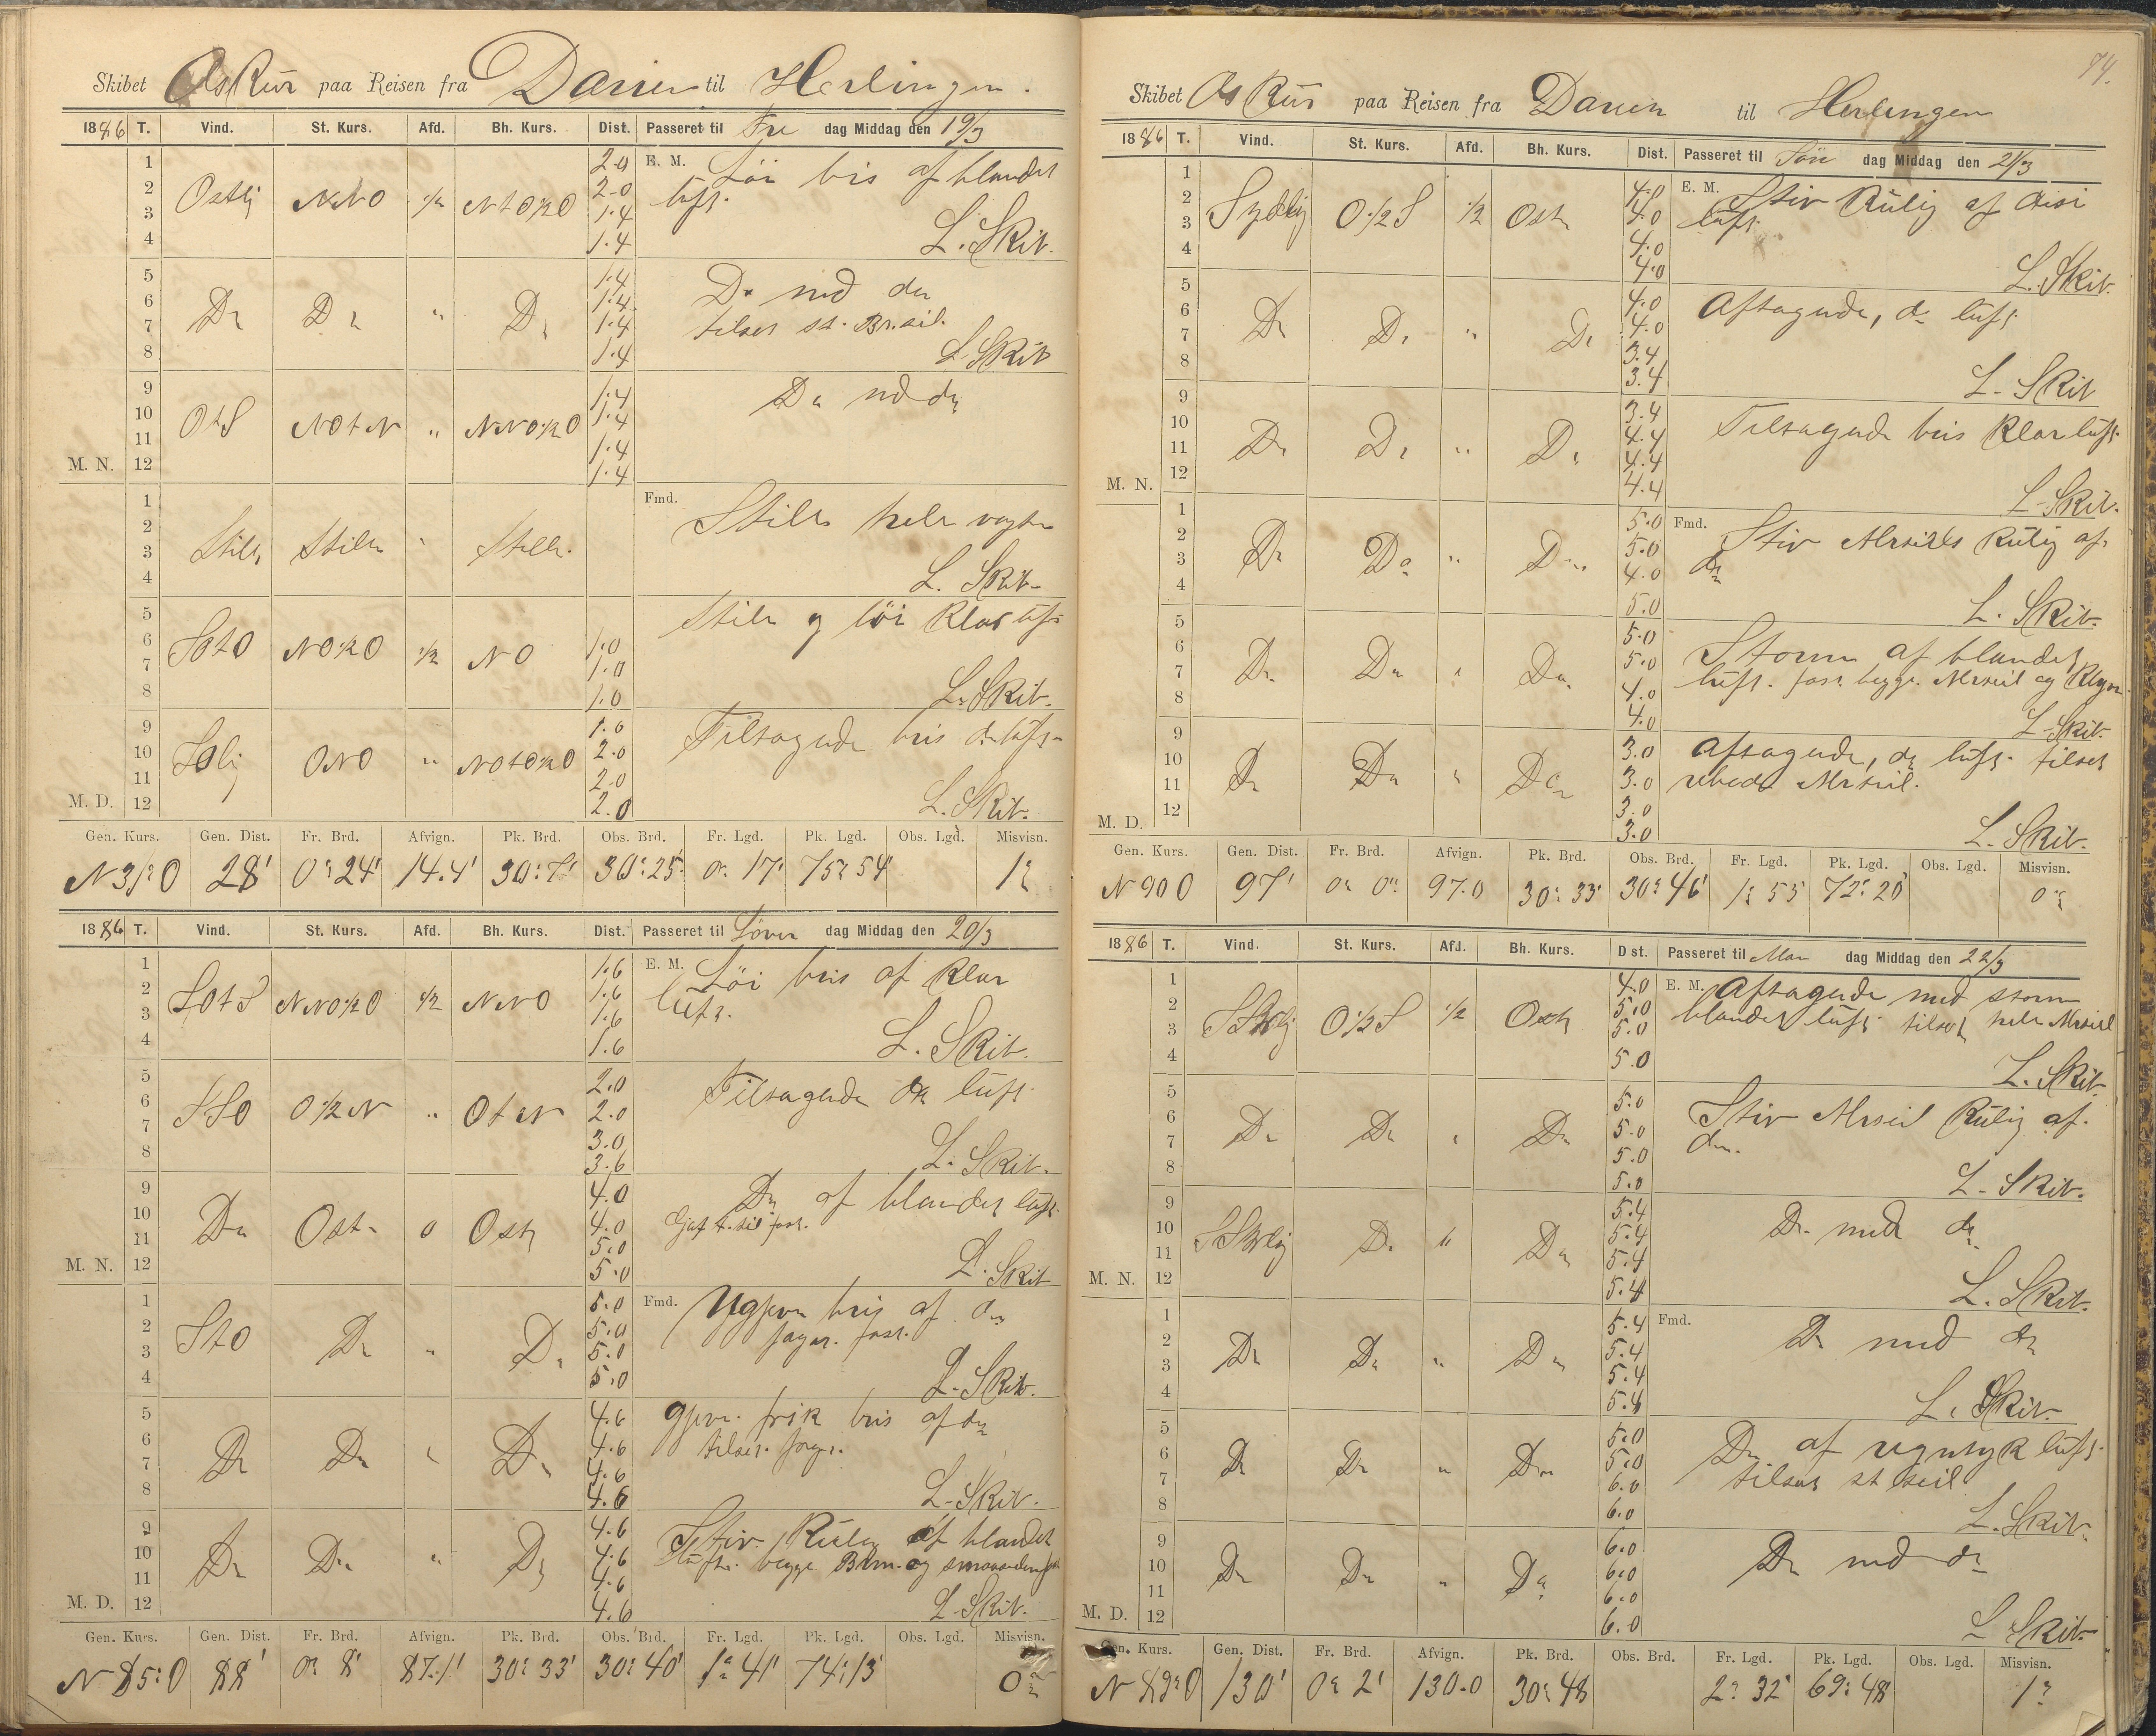 Skibet Oskar paa Reisen fra Darien til Herlingen.
1886 T. Vind. St. Kurs. Afd. Bh. Kurs. Dist. Passeret til Fre dag Middag den 19/3
1 2.0 E. M. Löi bris af blandet
2 Ostlig NNO 1/2 NtO1/2O 2.0 luft.
3 1.4
4 1.4 L. Skib.
5 1.4 Do med do
6 Do Do " Do 1.4 tilsat st. Br. seil.
7 1.4
8 1.4 L. Skib
9 1.4 Do med do
10 OtS NOtN " NNO1/2O 1.4
11 1.4
M. N. 12 1.4
1 Fmd. Stille hele vagten
2
3 Stille Stille " Stille.
4 L. Skib.
5 Stille og löi klar luft
6 SOtO NO1/2O 1/2 NO 1.0
7 1.0
8 1.0 L. Skib.
9 1.0 Tiltagende bris do luft
10 SOlig ONO " NOtO1/2O 2.0
11 2.0
M. D. 12 2.0 L. Skib.
Gen. Kurs. Gen. Dist. Fr. Brd. Afvign. Pk. Brd. Obs. Brd. Fr. Lgd. Pk. Lgd. Obs. Lgd. Misvisn.
N 31° O 28' 0° 24' 14.4' 30° 7' 30° 25' 0° 17' 75° 54' 1°
1886 T. Vind. St. Kurs. Afd. Bh. Kurs. Dist. Passeret til Löver dag Middag den 20/3
1 1.6 E. M. Löi bris af klar
2 SOtS NNO1/2O 1/2 NNO 1.6 luft.
3 1.6
4 1.6 L. Skib.
5 2.0 Tiltagende do luft
6 SSO O1/2N " OtN 2.0
7 3.0
8 3.6 L. Skib.
9 4.0 Do af blandet luft
10 Do Ost 0 Ost 4.0
11 5.0
M. N. 12 5.0 L. Skib
1 5.0 Fmd. Ugjevn bris af do
2 StO Do " Do 5.0 jager. fast.
3 5.0
4 5.0 L. Skib.
5 4.6 gjevn. frisk bris af do
6 Do Do " Do 4.6 tilsat. jager.
7 4.6
8 4.6 L. Skib.
9 4.6 Stiv Kuling af blandet
10 Do Do " Do 4.6 luft. begge Brm. og
11 4.6
M. D. 12 4.6 L. Skib.
Gen. Kurs. Gen. Dist. Fr. Brd. Afvign. Pk. Brd. Obs. Brd. Fr. Lgd. Pk. Lgd. Obs. Lgd. Misvisn.
N 85° O 88' 0° 8' 87.1' 30° 33' 30° 40' 1° 41' 74° 13' 0°
74.
Skibet Oskar paa Reisen fra Darien til Herlingen
1886 T. Vind. St. Kurs. Afd. Bh. Kurs. Dist. Passeret til Sön dag Middag den 21/3
1 4.0 E. M. Stiv Kulig af disi
2 Sydlig O1/2S 1/2 Ost 4.0 luft.
3 4.0
4 4.0 L. Skib.
5 4.0 Aftagende, do luft
6 Do Do " Do 4.0
7 3.4
8 3.4 L. Skib
9 3.4 Tiltagende bris klar luft
10 Do Do " Do 4.4
11 4.4
M. N. 12 4.4 L. Skib.
1 5.0 Fmd. Stiv Mrseils Kulig af
2 Do Do " Do 5.0 do
3 4.0
4 5.0 L. Skib.
5 5.0 Storm af blandet
6 Do Do " Do 5.0 luft. fast begge Mrseil og Klyver
7 4.0
8 4.0 L. Skib.
9 3.0 Aftagende, do luft. tilsat
10 Do Do " Do 3.0 rebede Mrseil.
11 3.0
M. D. 12 3.0 L. Skib.
Gen. Kurs. Gen. Dist. Fr. Brd. Afvign. Pk. Brd. Obs. Brd. Fr. Lgd. Pk. Lgd. Obs. Lgd. Misvisn.
N 90 O 97' 0° 0' 97.0 30° 33' 30° 46' 1° 53' 72° 20' 0°
1886 T. Vind. St. Kurs. Afd. Bh. Kurs. Dist. Passeret til Man dag Middag den 22/3
1 4.0 E. M. Aftagende med storm
2 SSWlig O1/2S 1/2 Ost 5.0 blandet luft tilsat hele Mrseil
3 5.0
4 5.0 L. Skib
5 5.0 Stiv Mrseil Kulig af
6 Do Do " Do 5.0 do.
7 5.0
8 5.0 L. Skib.
9 5.4 Do med do
10 SSWlig Do " Do 5.4
11 5.4
M. N. 12 5.4 L. Skib.
1 5.4 Fmd. Do med do
2 Do Do " Do 5.4
3 5.4
4 5.4 L. Skib.
5 5.0 Do af regntyk luft
6 Do Do " Do 5.0 tilsat st seil
7 6.0
8 6.0 L. Skib.
9 6.0 Do med do
10 Do Do " Do 6.0
11 6.0
M. D. 12 6.0 L. Skib.
Gen. Kurs. Gen. Dist. Fr. Brd. Afvign. Pk. Brd. Obs. Brd. Fr. Lgd. Pk. Lgd. Obs. Lgd. Misvisn.
N 89° O 130' 0° 2' 130.0 30° 48 2° 32' 69° 48 1°